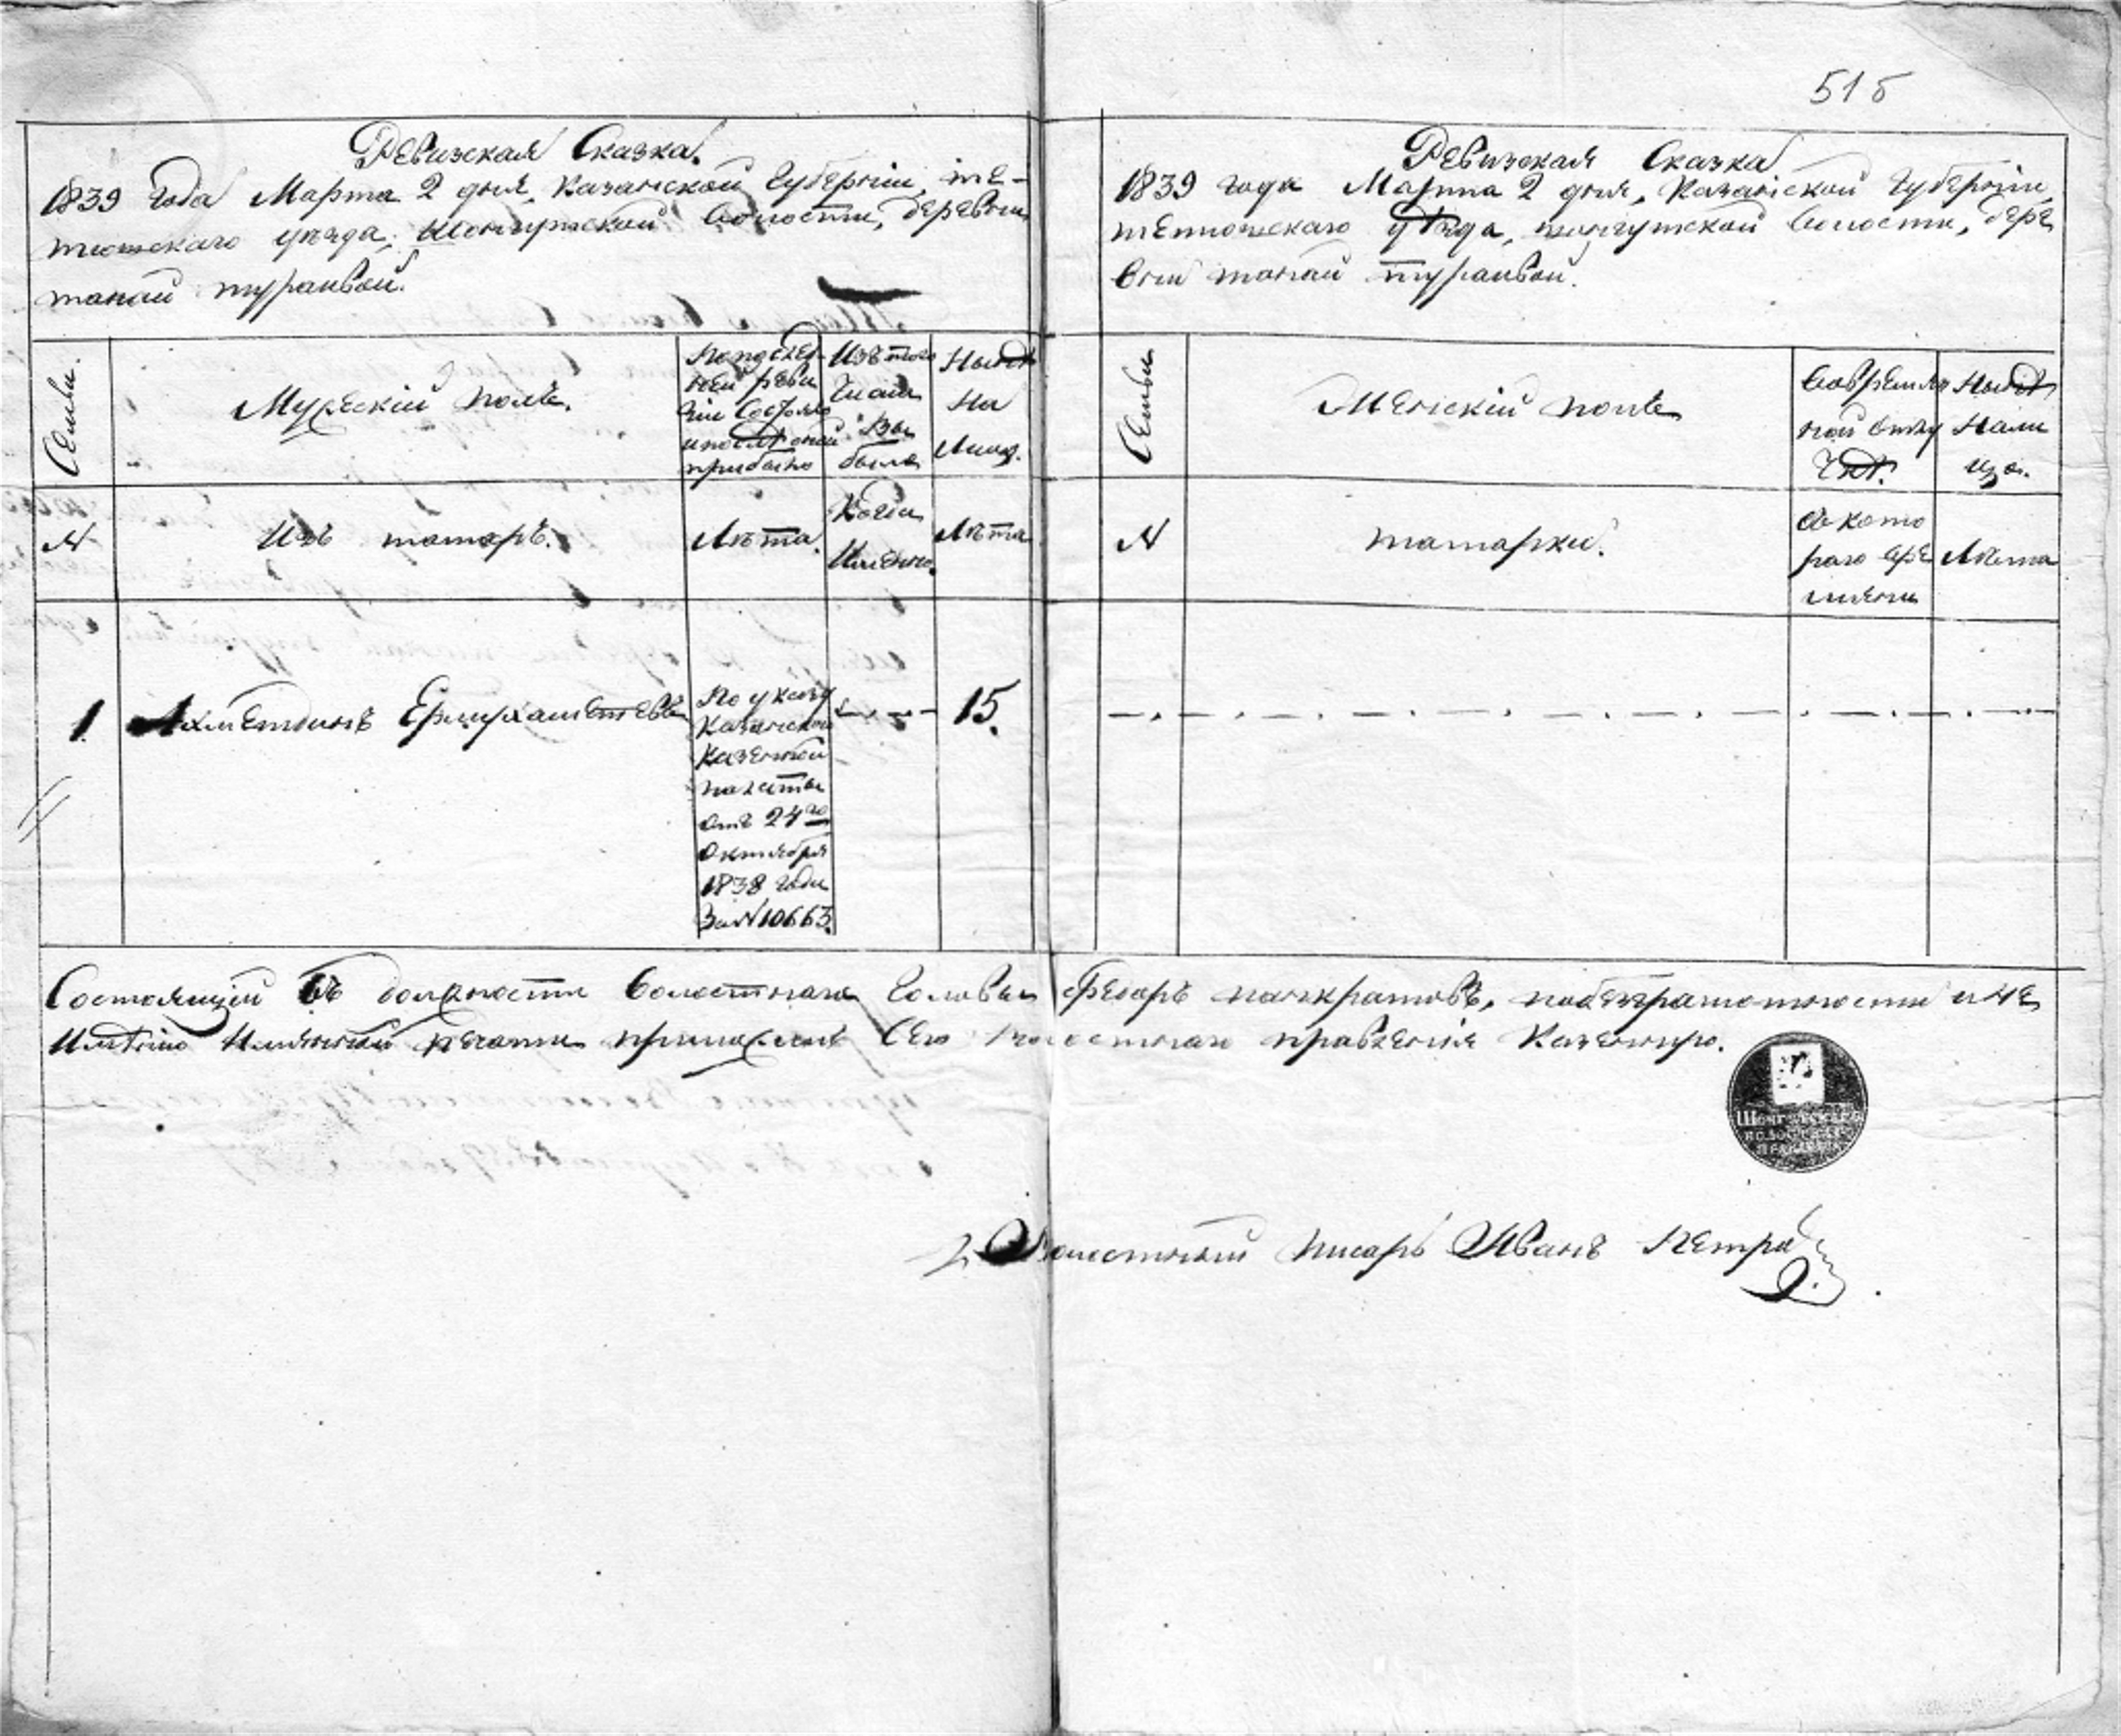 515
Ревизская Сказка.
1839 года Марта 2 дня, Казанской Губернии, те-
тюшскаго уезда, Шонгутской волости, деревни
танай тураивой.
Семьи.
Мужескій полъ.
По послед-
ней реви
зіи состояло
и после оной
прибыло
Изъ того
числа
выбыло
Ныне
на
лицо.
№
Изъ татаръ.
Лѣта.
Когда
Имянно.
Лѣта
1.
Ахметдинъ
По указу
Казанской
Казенной
палаты
отъ 24го
октября
1838 года
за №10663.
15.
Ревизская Сказка
1839 года Марта 2 дня, Казанской Губерніи,
тетюшскаго уѣзда, шонгутской волости, дере
вни танай тураивой.
Семьи
Женскій полъ
Во времян
ной отлу
чкѣ.
Нынѣ
на ли
цо.
№
татарки.
Съ кото
раго вре
мяни
Лѣта
Состоящій въ должности волостнаго Головы Федоръ панкратовъ, по безграмотности и не
имѣнію Имянной печати приложилъ Сего волостнаго правленія Казенную.
Шонгутскаго
волостнаго
правленія
Волостной писарь Иванъ Петров